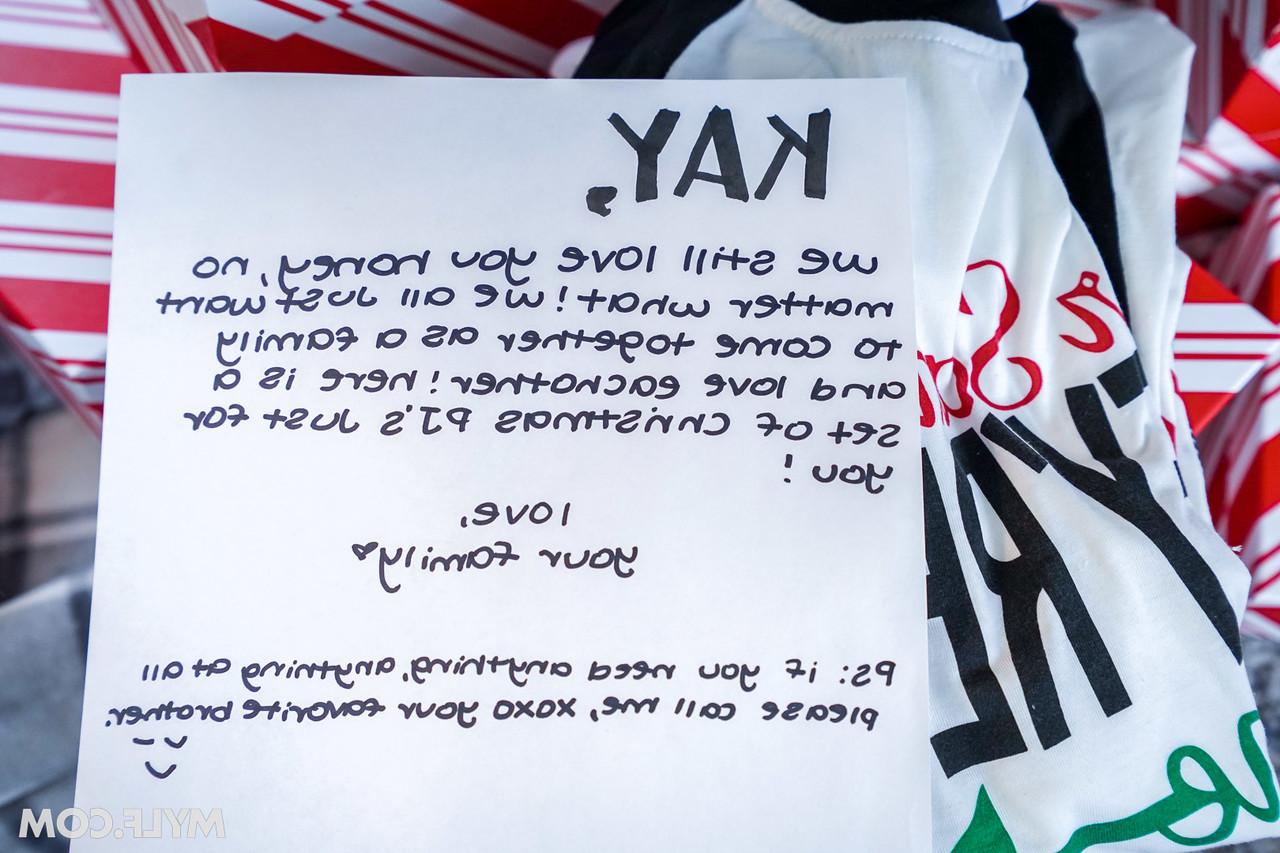 KAY,
we still love you honey, no
matter what! we all Just want
to come together as a family
and love eachother! here is a
set of christmas PJ's Just for
you!
love,
your family♥
PS: if you need anything, anything at all
please call me, xoxo your favorite brother.
MYLF.COM